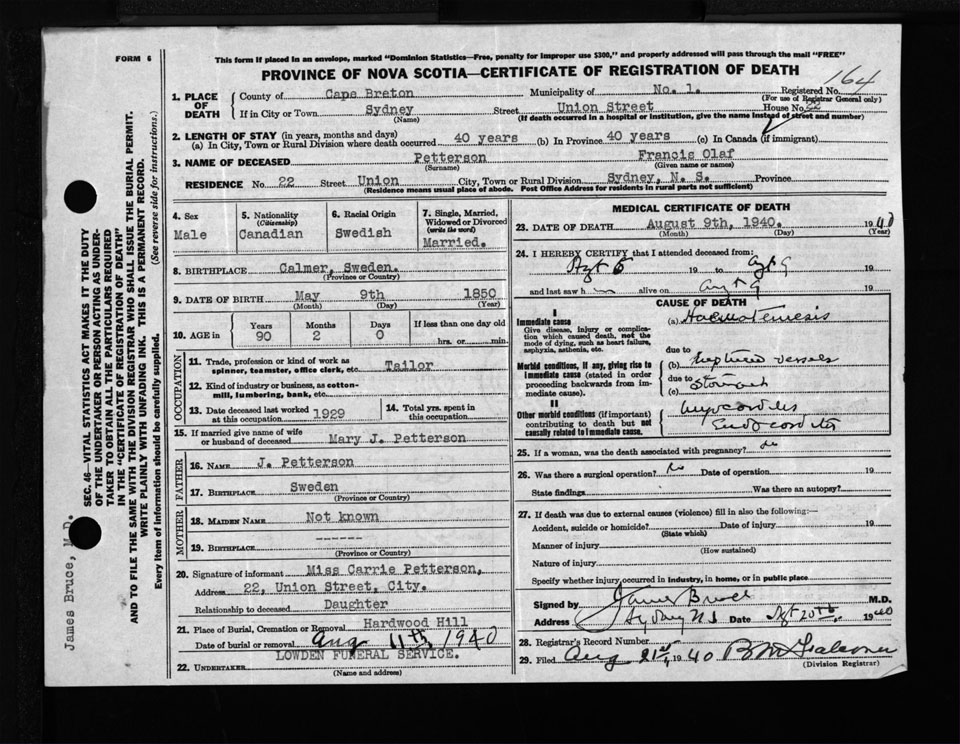 FORM 6
This form if placed in an envelope, marked "Dominion Statistics—Free, penalty for improper use $300," and properly addressed will pass through the mail "FREE"
PROVINCE OF NOVA SCOTIA—CERTIFICATE OF REGISTRATION OF DEATH
164
Registered No.
(For use of Registrar General only)
1. PLACE OF DEATH
County of Cape Breton Municipality of No. 1.
If in City or Town Sydney Street Union Street House No. 22
(Name) (If death occurred in a hospital or institution, give the name instead of street and number)
2. LENGTH OF STAY (in years, months and days)
(a) In City, Town or Rural Division where death occurred 40 years (b) In Province 40 years (c) In Canada (if immigrant)
3. NAME OF DECEASED Petterson Francis Olaf
(Surname) (Given name or names)
RESIDENCE No. 22 Street Union City, Town or Rural Division Sydney, N. S. Province
(Residence means usual place of abode. Post Office Address for residents in rural parts not sufficient)
4. Sex Male
5. Nationality (Citizenship) Canadian
6. Racial Origin Swedish
7. Single, Married, Widowed or Divorced (write the word) Married.
8. BIRTHPLACE Calmer, Sweden.
(Province or Country)
9. DATE OF BIRTH May 9th 1850
(Month) (Day) (Year)
10. AGE in Years 90 Months 2 Days 0 If less than one day old hrs. or min.
OCCUPATION
11. Trade, profession or kind of work as spinner, teamster, office clerk, etc. Tailor
12. Kind of industry or business, as cotton-mill, lumbering, bank, etc.
13. Date deceased last worked at this occupation 1929
14. Total yrs. spent in this occupation
15. If married give name of wife or husband of deceased Mary J. Petterson
FATHER
16. NAME J. Petterson
17. BIRTHPLACE Sweden
(Province or Country)
MOTHER
18. MAIDEN NAME Not known
19. BIRTHPLACE ------
(Province or Country)
20. Signature of informant Miss Carrie Petterson,
Address 22, Union Street, City.
Relationship to deceased Daughter
21. Place of Burial, Cremation or Removal Hardwood Hill
Date of burial or removal Aug 11th, 1940
22. UNDERTAKER LOWDEN FUNERAL SERVICE.
(Name and address)
MEDICAL CERTIFICATE OF DEATH
23. DATE OF DEATH August 9th, 1940. 1940
(Month) (Day) (Year)
24. I HEREBY CERTIFY that I attended deceased from:
19 to Aug 9 19
and last saw h alive on Aug 9 19
CAUSE OF DEATH
I
Immediate cause
Give disease, injury or complication which caused death, not the mode of dying, such as heart failure, asphyxia, asthenia, etc.
(a) Haematemesis
due to
Morbid conditions, if any, giving rise to immediate cause (stated in order proceeding backwards from immediate cause).
(b) vessels
due to
(c) Stomach
II
Other morbid conditions (if important) contributing to death but not causally related to immediate cause.
Myocarditis
Endocarditis
25. If a woman, was the death associated with pregnancy?
26. Was there a surgical operation? No Date of operation 19
State findings Was there an autopsy?
27. If death was due to external causes (violence) fill in also the following:—
Accident, suicide or homicide? Date of injury 19
(State which)
Manner of injury
(How sustained)
Nature of injury
Specify whether injury occurred in industry, in home, or in public place
Signed by James Bruce M.D.
Address Sydney N S Date 20th 1940
28. Registrar's Record Number
29. Filed Aug 21st, 1940 B M Falconer
(Division Registrar)
SEC. 46—VITAL STATISTICS ACT MAKES IT THE DUTY
OF THE UNDERTAKER OR PERSON ACTING AS UNDER-
TAKER TO OBTAIN ALL THE PARTICULARS REQUIRED
IN THE "CERTIFICATE OF REGISTRATION OF DEATH"
AND TO FILE THE SAME WITH THE DIVISION REGISTRAR WHO SHALL ISSUE THE BURIAL PERMIT.
WRITE PLAINLY WITH UNFADING INK. THIS IS A PERMANENT RECORD.
Every item of information should be carefully supplied. (See reverse side for instructions.)
James Bruce, M.D.